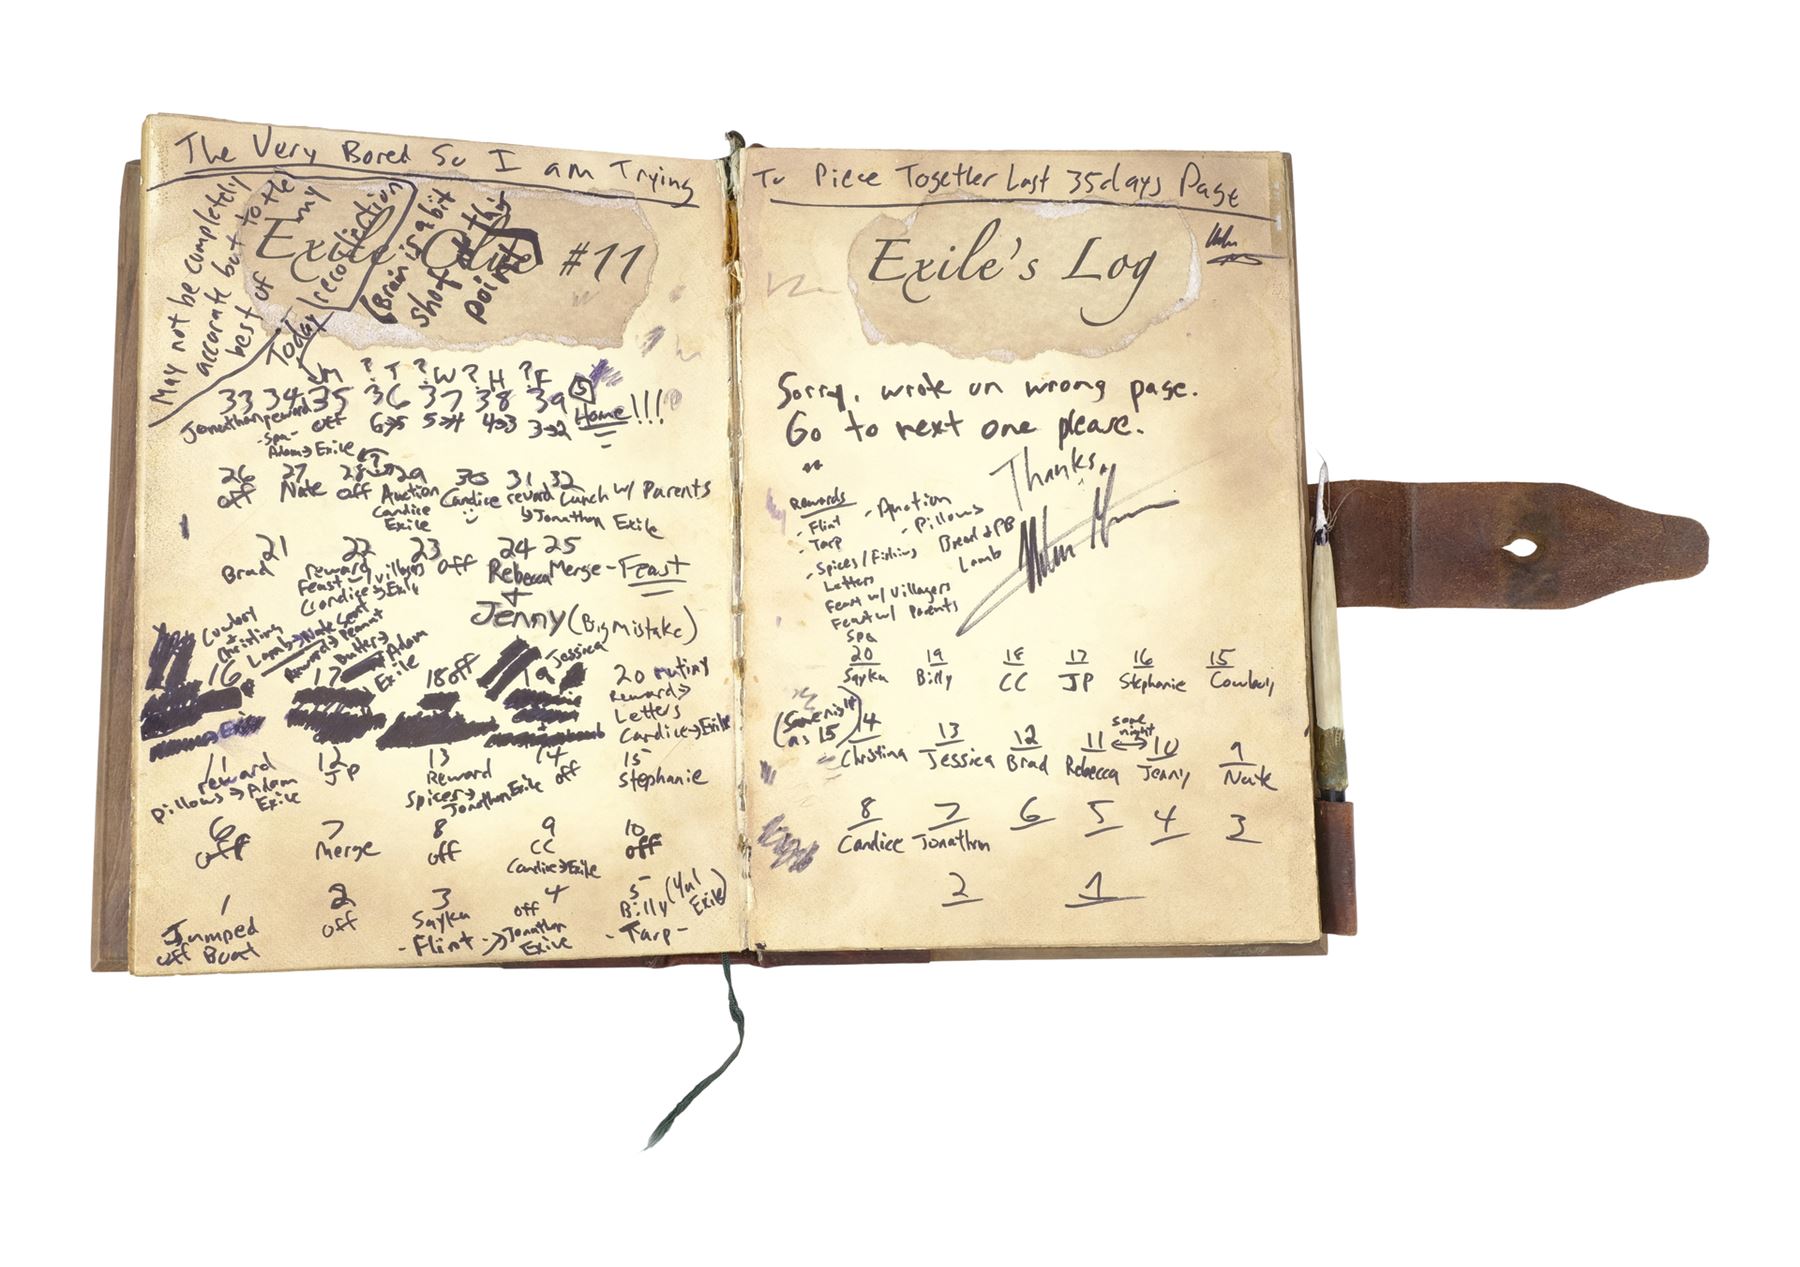 The Very Bored So I am Trying
To Piece Together Last 35 days Page
May not be completely
accurate but to the
best of my
recollection
(Brain is a bit
shot at this
point)
Exile Clue #11
Today
M ? T ? W ? H ? F
33 34 35 36 37 38 39 Home!!!
Jonathan reward off 6→5 5→4 4→3 3→2
-Spa-
Adam→Exile
26 27 28 29 30 31 32
off Nate off Auction Candice reward Lunch w/ Parents
Candice
Exile
→Jonathan Exile
21 22 23 24 25
Brad reward off Rebecca Merge-Feast
Feast w/ villagers
(Candice→Exile
+
Jenny (Big Mistake)
Cowboy
+
Christina
Lamb→Nate Sent
Reward→Peanut
Butter→
Adam
Exile
Jessica
16 17 18 off 19 20 mutiny
Reward→
Letters
Candice→Exile
Exile
11 12 13 14 15
reward JP Reward off Stephanie
pillows→Adam
Exile
Spices→
Jonathan Exile
6 7 8 9 10
off Merge off CC off
Candice→Exile
1 2 3 4 5
Jumped off Sayku off Billy (Yul
off Boat -Flint-→Jonathan -Tarp- Exile)
Exile
Exile's Log
Sorry, wrote on wrong page.
Go to next one please.
Thanks,
Rewards
-Flint
-Tarp
-Spices/Fishing
Letters
Feast w/ Villagers
Feast w/ Parents
Spa
-Auction
-Pillows
Bread & PB
Lamb
20 19 18 17 16 15
Sayku Billy CC JP Stephanie Cowboy
(Same night
as 15)
same
night
14 13 12 11 10 9
Christina Jessica Brad Rebecca Jenny Nate
8 7 6 5 4 3
Candice Jonathan
2 1